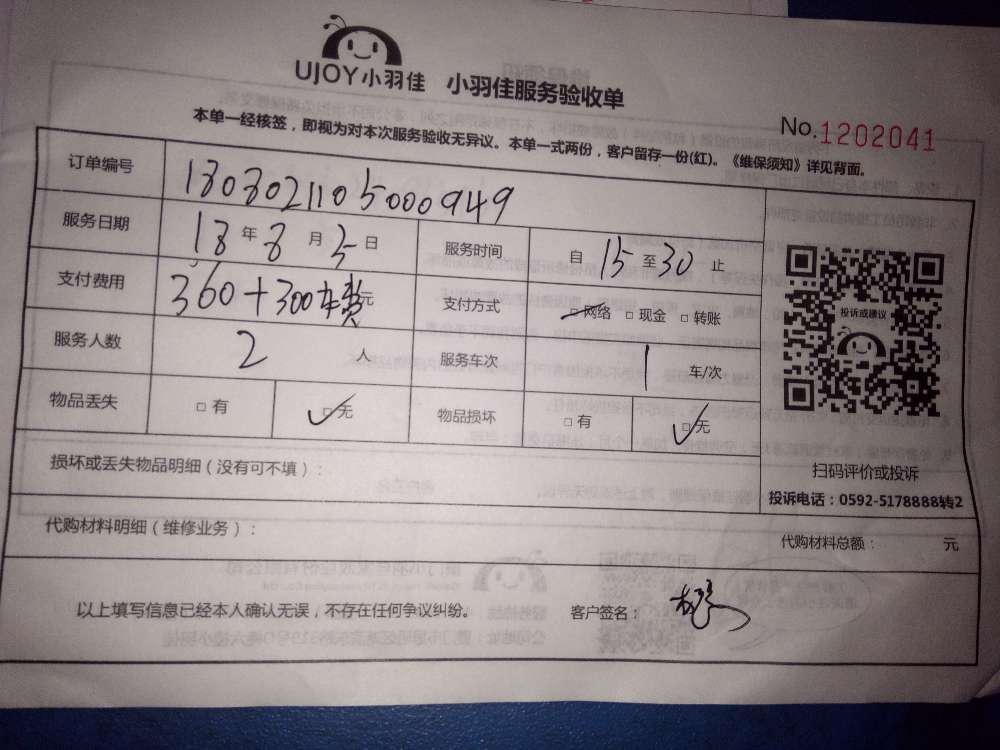 UJOY小羽佳 小羽佳服务验收单
No.1202041
本单一经核签，即视为对本次服务验收无异议。本单一式两份，客户留存一份(红)。《维保须知》详见背面。
订单编号 1803021105000949
服务日期 18年3月3日 服务时间 自15至30止
支付费用 360+300车费元 支付方式 □网络 □现金 □转账
服务人数 2人 服务车次 1车/次
物品丢失 □有 ☑无 物品损坏 □有 ☑无
投诉或建议
扫码评价或投诉
投诉电话：0592-5178888转2
损坏或丢失物品明细（没有可不填）：
代购材料明细（维修业务）： 代购材料总额： 元
以上填写信息已经本人确认无误，不存在任何争议纠纷。 客户签名：